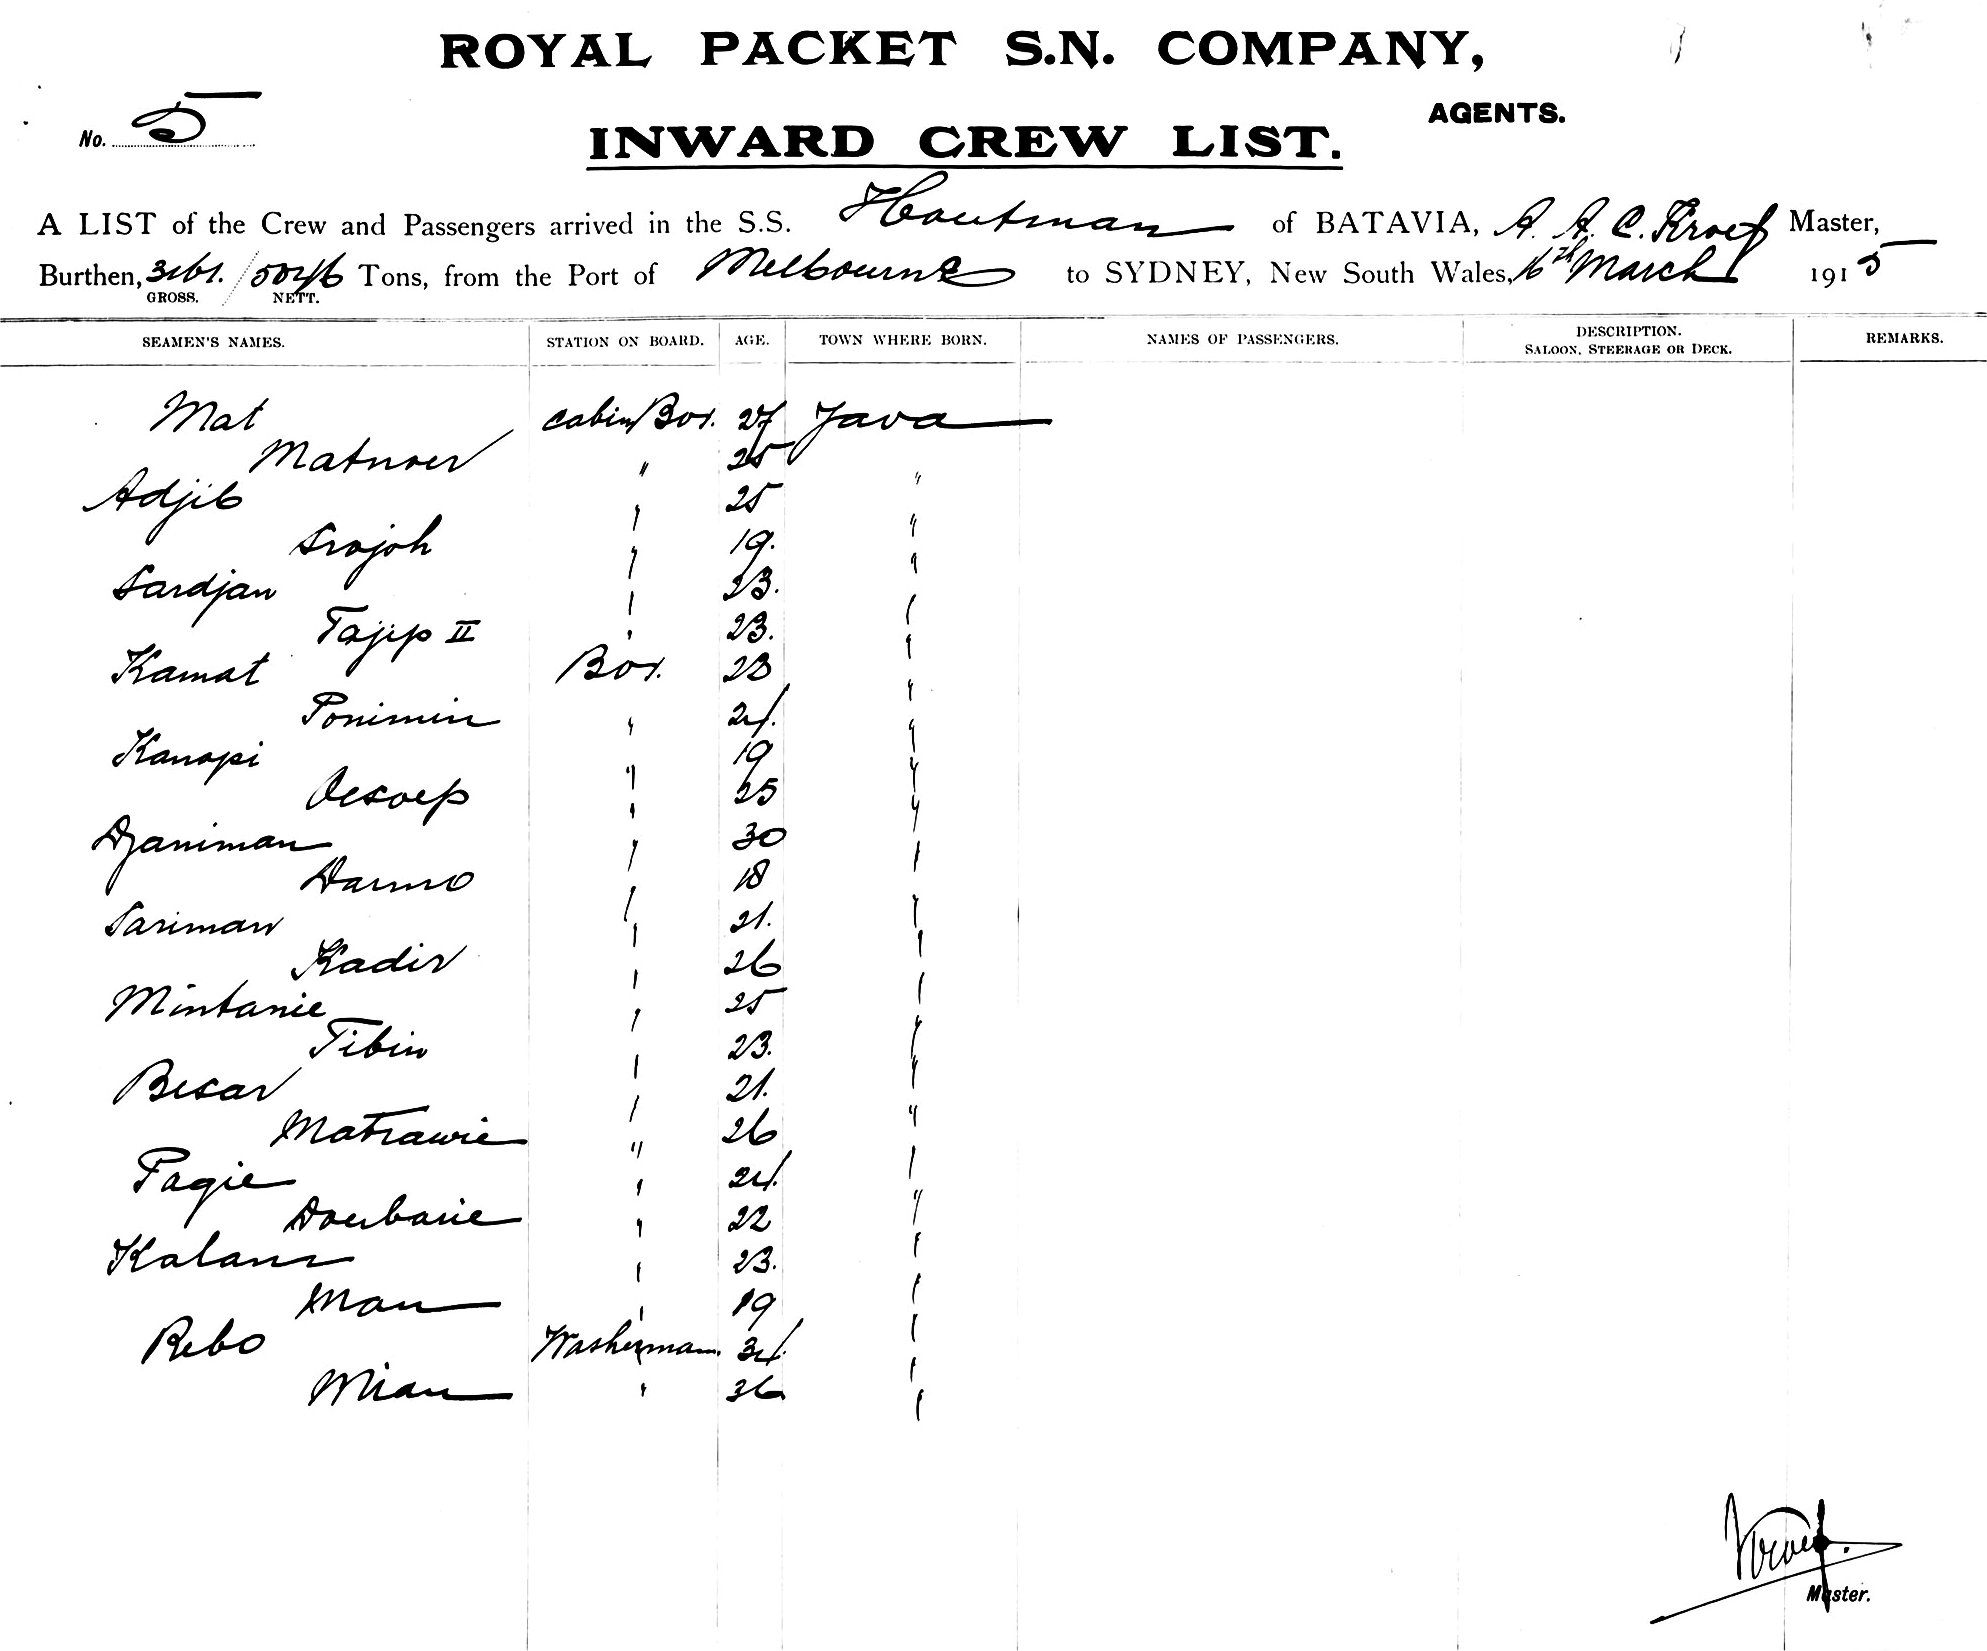 ROYAL PACKET S.N. COMPANY,
AGENTS.
No. 5
INWARD CREW LIST.
A LIST of the Crew and Passengers arrived in the S.S. Houtman of BATAVIA, A. A. C. Kroef Master,
Burthen, 3161. / 5046 Tons, from the Port of Melbourne to SYDNEY, New South Wales, 16th March 1915
GROSS. NETT.
SEAMEN'S NAMES. STATION ON BOARD. AGE. TOWN WHERE BORN. NAMES OF PASSENGERS. DESCRIPTION. SALOON, STEERAGE OR DECK. REMARKS.
Mat cabin Boy. 27 Java
Matnoer " 25 "
Adjib " 25 "
Srojoh " 19. "
Sardjan " 23. "
Tajip II " 23. "
Kamat Boy. 23 "
Ponimin " 24. "
Kanapi " 19 "
Oesoep " 25 "
Djaniman " 30 "
Darmo " 18 "
Sariman " 21. "
Kadir " 26 "
Mintanie " 25 "
Tibin " 23. "
Besar " 21. "
Matrawie " 26 "
Pagie " 24. "
Doerbarie " 22 "
Kalam " 23. "
Man " 19 "
Rebo Washerman. 34. "
Mian " 36 "
Kroef.
Master.